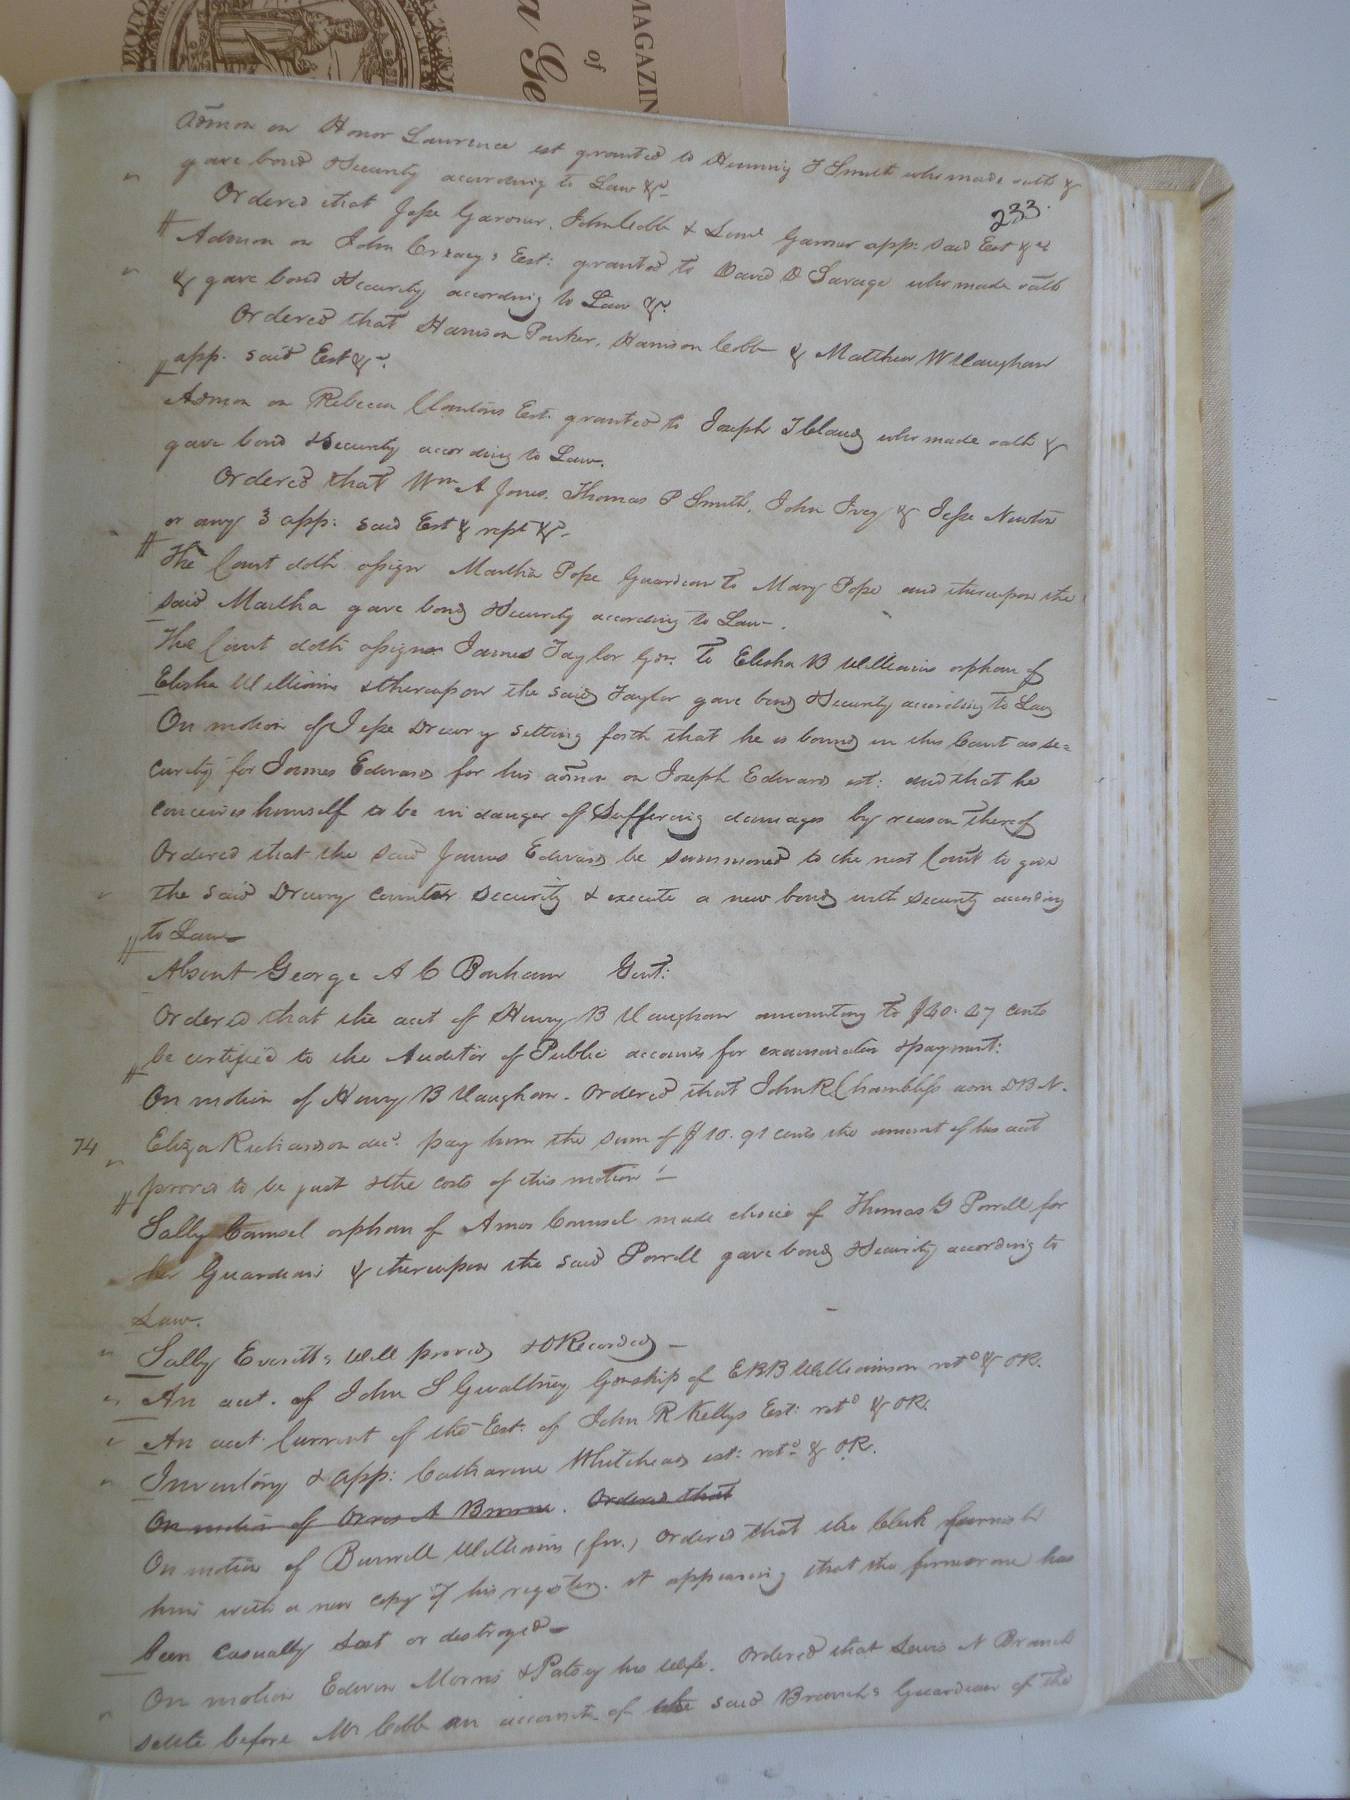 MAGAZIN
of
a Ge
Admon on Honor Lawrence est granted to Henning T Smith who made oath &
gave bond & Security according to Law &c
233.
Ordered that Jesse Garner, John Cobb & Garner app: said Est &c
Admon on John Creacy's Est: granted to David D Savage who made oath
& gave bond & Security according to Law &c.
Ordered that Harrison Parker, Harrison Cobb & Matthew W Vaughan
app. said Est &c.
Admon on Rebecca Clantons Est. granted to Joseph T Claud who made oath &
gave bond & Security according to Law.
Ordered that Wm A Jones, Thomas P Smith, John Ivey & Jesse Newton
or any 3 app: said Est & rept &c.
The Court doth assign Martha Pope Guardian to Mary Pope and thereupon the
said Martha gave bond & Security according to Law.
The Court doth assign James Taylor Gdn. to Elisha B Williams orphan of
Elisha Williams & thereupon the said Taylor gave bond & Security according to Law
On motion of Jesse Drewry setting forth that he is bound in this Court as se=
curity for James Edwards for his admon on Joseph Edwards est: and that he
conceives himself to be in danger of Suffering damages by reason thereof
Ordered that the said James Edwards be summoned to the next Court to give
the said Drewry counter security & execute a new bond with security according
to Law
Absent George A C Bonham Gent:
Ordered that the acct of Henry B Vaughan amounting to $40. 47 cents
be certified to the Auditor of Public accounts for examination & payment:
On motion of Henry B Vaughan. Ordered that John R Chambliss adm DBN.
74
Eliza Richardson decd. pay him the sum of $10. 91 cents the amount of his acct
proved to be just & the costs of this motion!
Sally Counsel orphan of Amos Counsel made choice of Thomas G Porrell for
her Guardian & thereupon the said Porrell gave bond & Security according to
Law.
Sally Everitt's Will proved & O Recorded
An acct. of John S Gwaltney Gdnship of EBB Williamson retd & OR.
An acct Current of the Est. of John R Kellys Est: retd & OR.
Inventory & App: Catharine Whitehead est: retd & OR.
On motion of A Browne. Ordered that
On motion of Burwell Williams (fn.) Ordered that the Clerk furnish
him with a new copy of his register. it appearing that the former one has
been casually lost or destroyed
On motion Edwin Morris & Patsy his wife. Ordered that Lewis N Branch
settle before Mr Cobb an account of the said Branch's Guardian of the